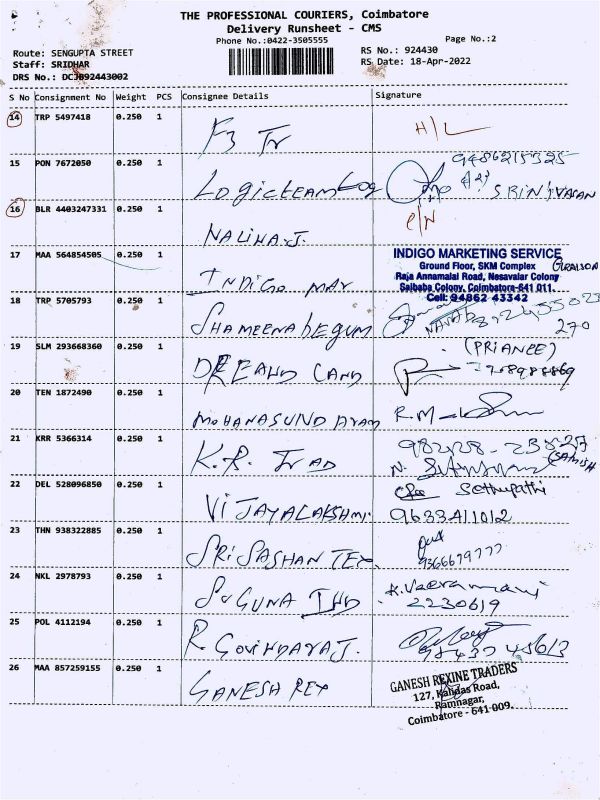 THE PROFESSIONAL COURIERS, Coimbatore
Delivery Runsheet - CMS
Phone No.:0422-3505555
Page No.:2
Route: SENGUPTA STREET
RS No.: 924430
Staff: SRIDHAR
RS Date: 18-Apr-2022
DRS No.: DCJ092443002
S No Consignment No Weight PCS Consignee Details Signature
14 TRP 5497418 0.250 1
F3 Tr H/L
15 PON 7672050 0.250 1 9486215325
Logicteam SRINIVASAN
16 BLR 4403247331 0.250 1
NALINA.J.
17 MAA 564854505 0.250 1 INDIGO MARKETING SERVICE
Ground Floor, SKM Complex
Raja Annamalai Road, Nesavalar Colony
INDIGO MAR Saibaba Colony, Coimbatore-641 011.
Cell: 94862 43342
18 TRP 5705793 0.250 1
SHAMEENA begum 270
19 SLM 293668360 0.250 1 (PRIANEE)
CAND
20 TEN 1872490 0.250 1
MOHANASUNDARAM
21 KRR 5366314 0.250 1
K.R. TRAD
22 DEL 528096850 0.250 1 Sethupathi
VIJAYALAKSHMI. 9633411012
23 THN 938322885 0.250 1
SRI SASHAN TEX. 9366679777
24 NKL 2978793 0.250 1 K.Veeramani
SUGUNA IND 2230619
25 POL 4112194 0.250 1
R GOVINDARAJ.
26 MAA 857259155 0.250 1 GANESH REXINE TRADERS
127, Kalidas Road,
GANESH REX Ramnagar,
Coimbatore - 641 009.